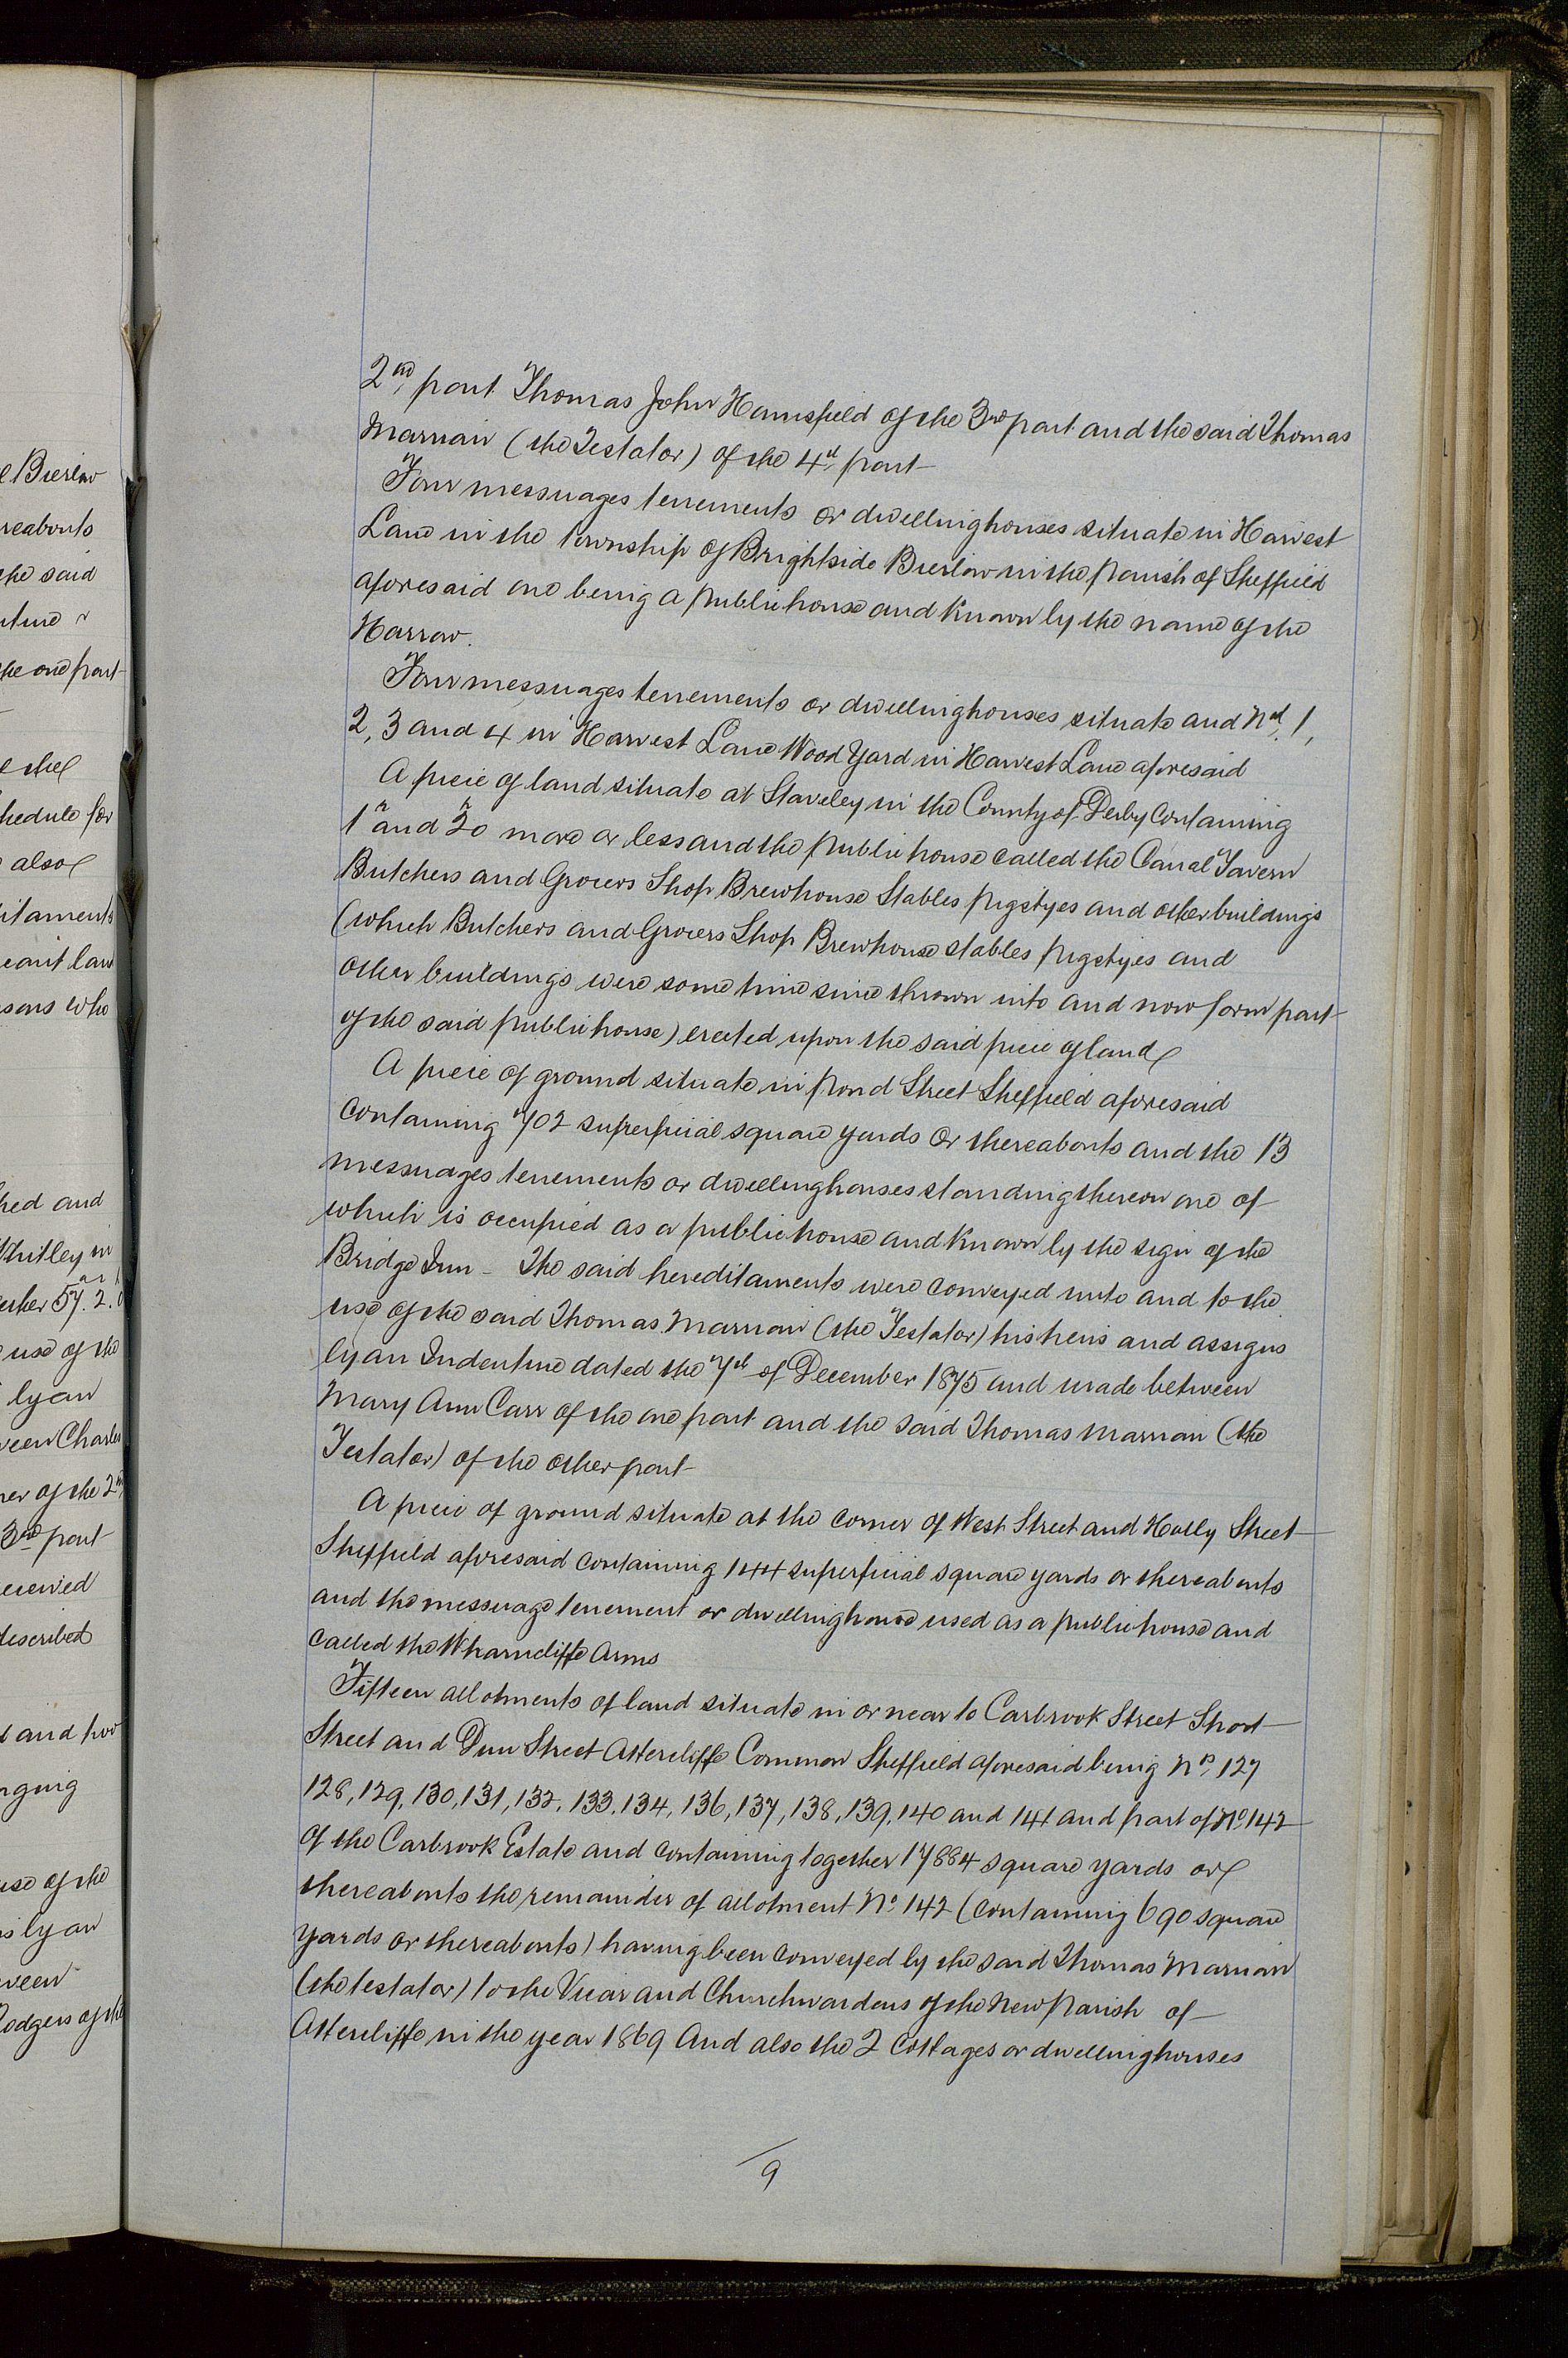 2nd part Thomas John Hounsfield of the 3rd part and the said Thomas
Marrian (the Testator) of the 4th part
Four messuages tenements or dwellinghouses situate in Harvest
Lane in the township of Brightside Bierlow in the parish of Sheffield
aforesaid one being a publichouse and known by the name of the
Harrow.
Four messuages tenements or dwellinghouses situate and Nd. 1,
2, 3 and 4 in Harvest Lane Wood Yard in Harvest Lane aforesaid
A piece of land situate at Staveley in the County of Derby containing
1r and 20 more or less and the public house called the Canal Tavern
Butchers and Grocers Shop Brewhouse Stables pigstyes and other buildings
(which Butchers and Grocers Shop Brewhouse stables pigstyes and
other buildings were some time since thrown into and now form part
of the said publichouse) erected upon the said piece of land
A piece of ground situate in Pond Street Sheffield aforesaid
containing 702 superficial square yards or thereabouts and the 13
messuages tenements or dwellinghouses standing thereon one of
which is occupied as a publichouse and known by the sign of the
Bridge Inn - The said hereditaments were conveyed unto and to the
use of the said Thomas Marrian (the Testator) his heirs and assigns
by an Indenture dated the 7th of December 1875 and made between
Mary Ann Carr of the one part and the said Thomas Marrian (the
Testator) of the other part
A piece of ground situate at the corner of West Street and Holly Street
Sheffield aforesaid containing 144 superficial square yards or thereabouts
and the messuage tenement or dwellinghouse used as a publichouse and
called the Wharncliffe Arms
Fifteen allotments of land situate in or near to Carbrook Street Short
Street and Dun Street Attercliffe Common Sheffield aforesaid being Nos. 127
128, 129, 130, 131, 132, 133, 134, 136, 137, 138, 139, 140 and 141 and part of No. 142
of the Carbrook Estate and containing together 17884 square yards or
thereabouts the remainder of allotment No. 142 (containing 690 square
yards or thereabouts) having been conveyed by the said Thomas Marrian
(the testator) to the Vicar and Churchwardens of the New Parish of
Attercliffe in the year 1869 And also the 2 cottages or dwellinghouses
9